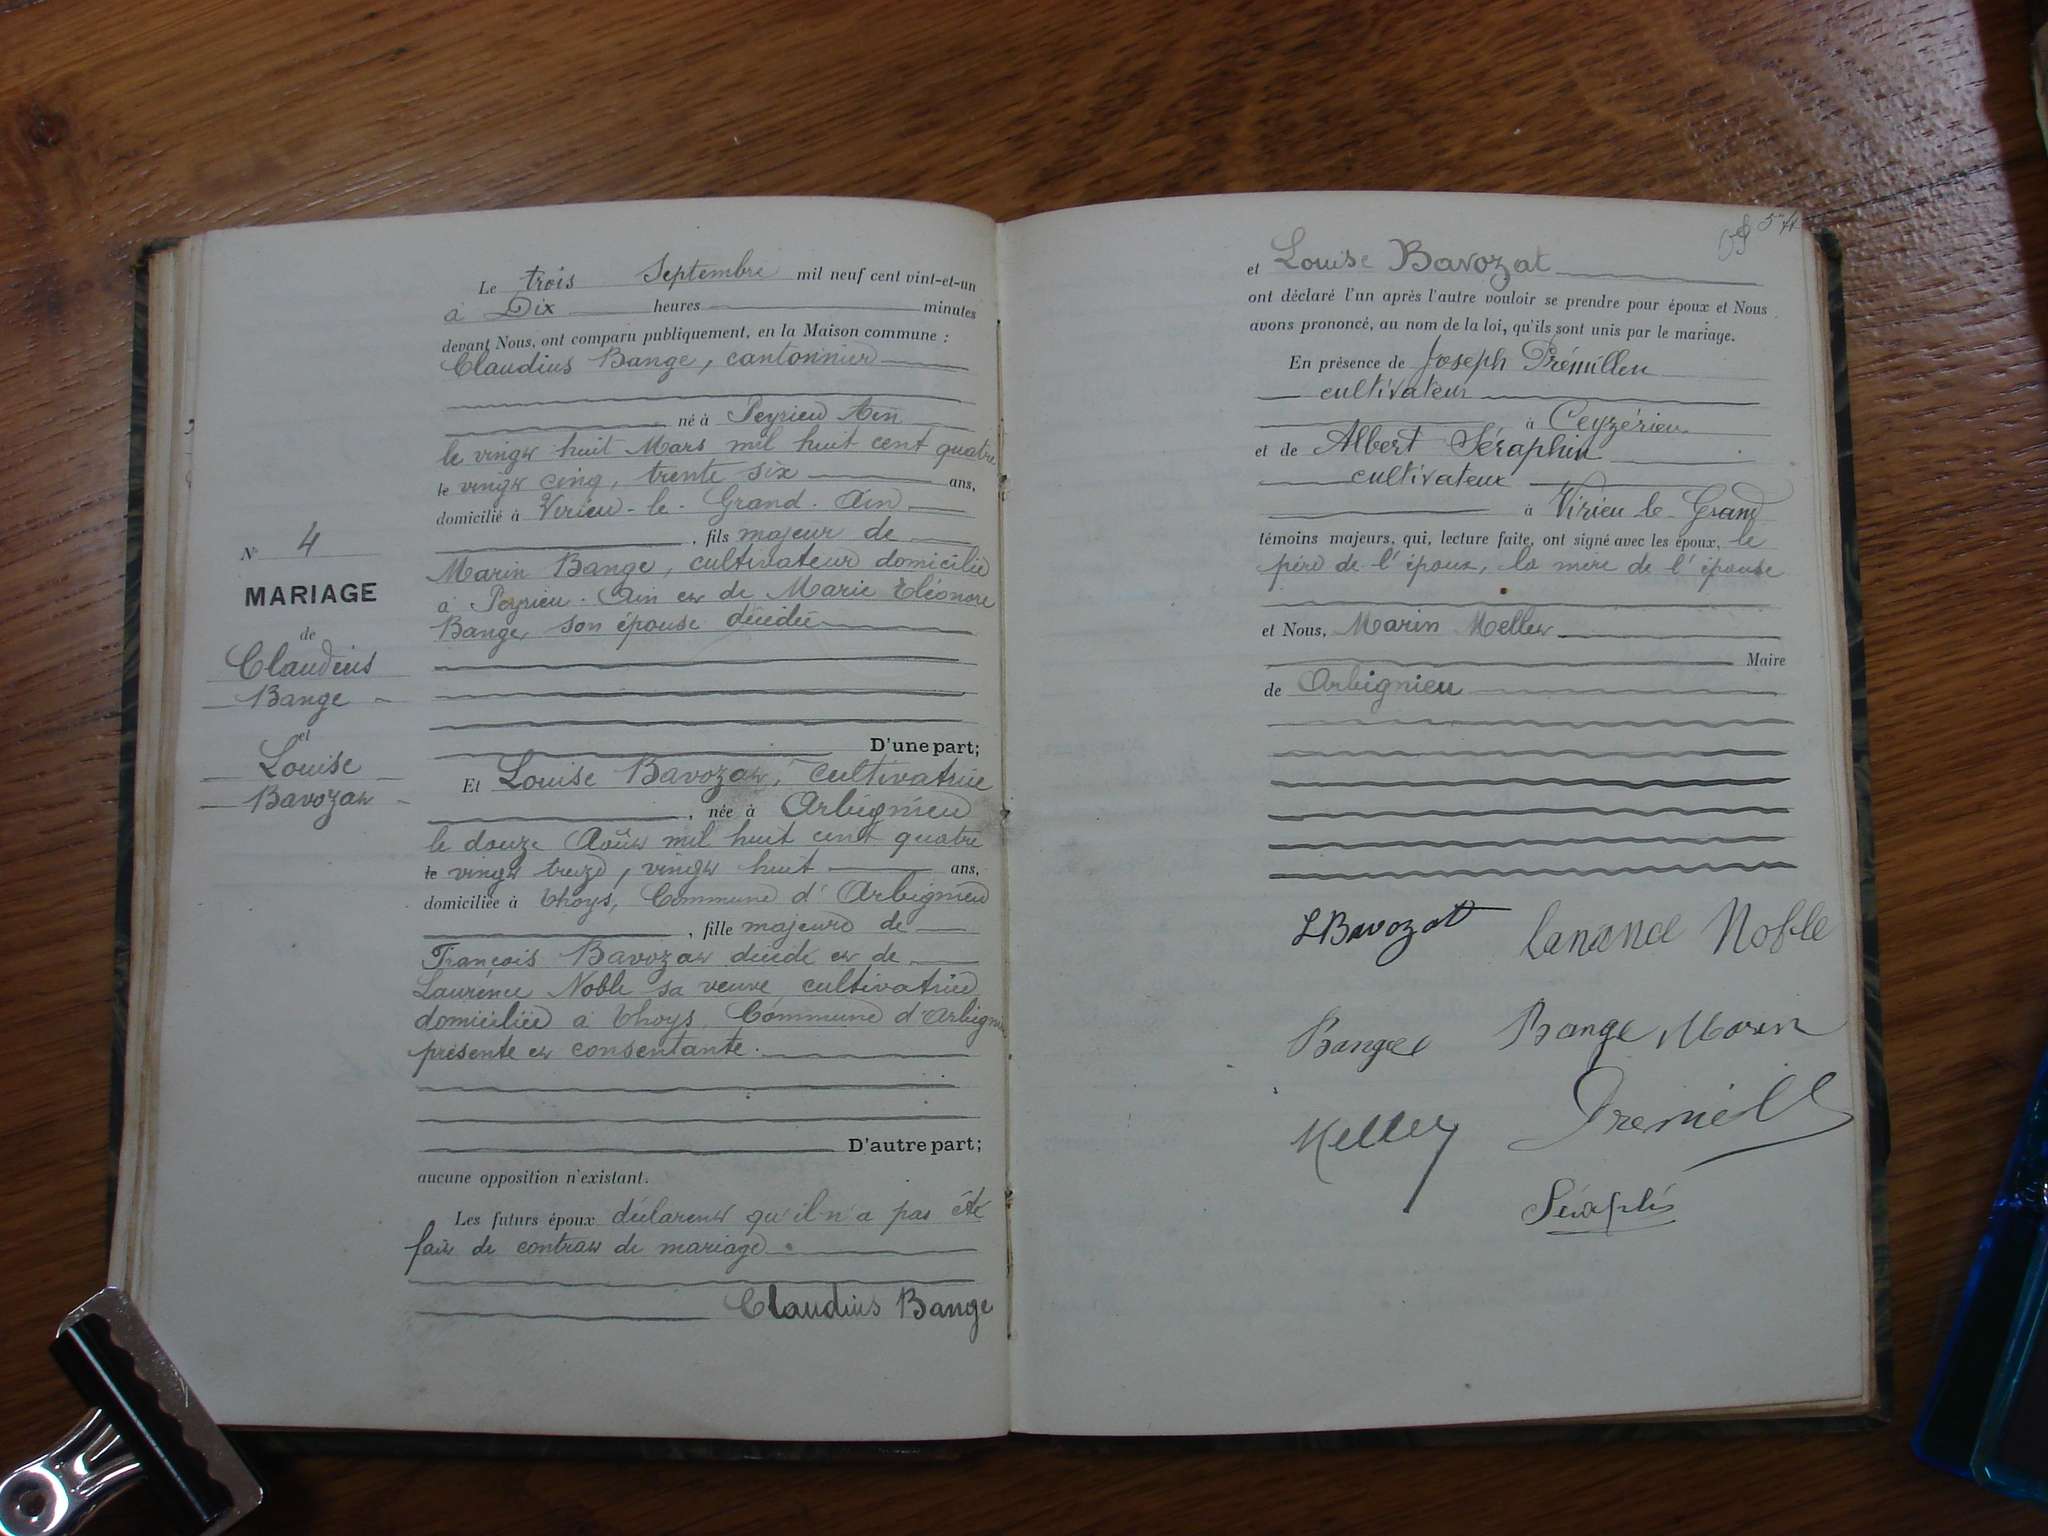 Le trois Septembre mil neuf cent vint-et-un
à Dix heures minutes
devant Nous, ont comparu publiquement, en la Maison commune :
Claudius Bange, cantonnier
né à Peyrieu Ain
le vingt huit Mars mil huit cent quatre
le vingt cinq, trente six ans,
domicilié à Virieu-le-Grand. Ain
, fils majeur de
Marin Bange, cultivateur domicilié
à Peyrieu. Ain et de Marie Eléonore
Bange, son épouse décédée
D'une part;
Nº 4
MARIAGE
de
Claudius
Bange
et
Louise
Bavozat
Et Louise Bavozat, cultivatrice
, née à Arbignieu
le douze Août mil huit cent quatre
le vingt treize, vingt huit ans,
domiciliée à Thoys, Commune d'Arbignieu
, fille majeure de
François Bavozat décédé et de
Laurence Noble sa veuve cultivatrice
domiciliée à Thoys, Commune d'Arbignieu
présente et consentante.
D'autre part;
aucune opposition n'existant.
Les futurs époux déclarent qu'il n'a pas été
fait de contrat de mariage.
Claudius Bange
et Louise Bavozat
ont déclaré l'un après l'autre vouloir se prendre pour époux et Nous
avons prononcé, au nom de la loi, qu'ils sont unis par le mariage.
En présence de Joseph Prémillieu
cultivateur
à Ceyzérieu
et de Albert Séraphin
cultivateur
à Virieu le Grand
témoins majeurs, qui, lecture faite, ont signé avec les époux, le
père de l'époux, la mère de l'épouse
et Nous, Marin Mellet
Maire
de Arbignieu
L Bavozat
Noble
Bange
Bange Marin
Mellet